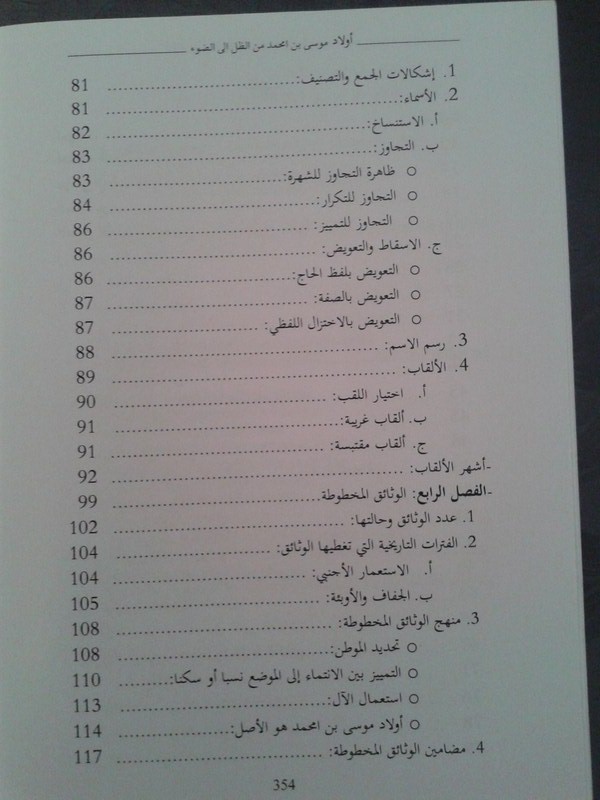 أولاد موسى بن امحمد من الظل الى الضوء
1. إشكالات الجمع والتصنيف: 81
2. الأسماء: 81
أ. الاستنساخ: 82
ب. التجاوز: 83
○ ظاهرة التجاوز للشهرة: 83
○ التجاوز للتكرار: 84
○ التجاوز للتمييز: 86
ج. الاسقاط والتعويض: 86
○ التعويض بلفظ الحاج: 86
○ التعويض بالصفة: 87
○ التعويض بالاختزال اللفظي: 87
3. رسم الاسم: 88
4. الألقاب: 89
أ. اختيار اللقب: 90
ب. ألقاب غريبة: 91
ج. ألقاب مقتبسة: 91
-أشهر الألقاب: 92
-الفصل الرابع: الوثائق المخطوطة 99
1. عدد الوثائق وحالتها: 102
2. الفترات التاريخية التي تغطيها الوثائق: 104
أ. الاستعمار الأجنبي: 104
ب. الجفاف والأوبئة: 105
3. منهج الوثائق المخطوطة: 108
○ تحديد الموطن: 108
○ التمييز بين الانتماء إلى الموضع نسبا أو سكنا: 110
○ استعمال الآل: 113
○ أولاد موسى بن امحمد هو الأصل: 114
4. مضامين الوثائق المخطوطة: 117
354